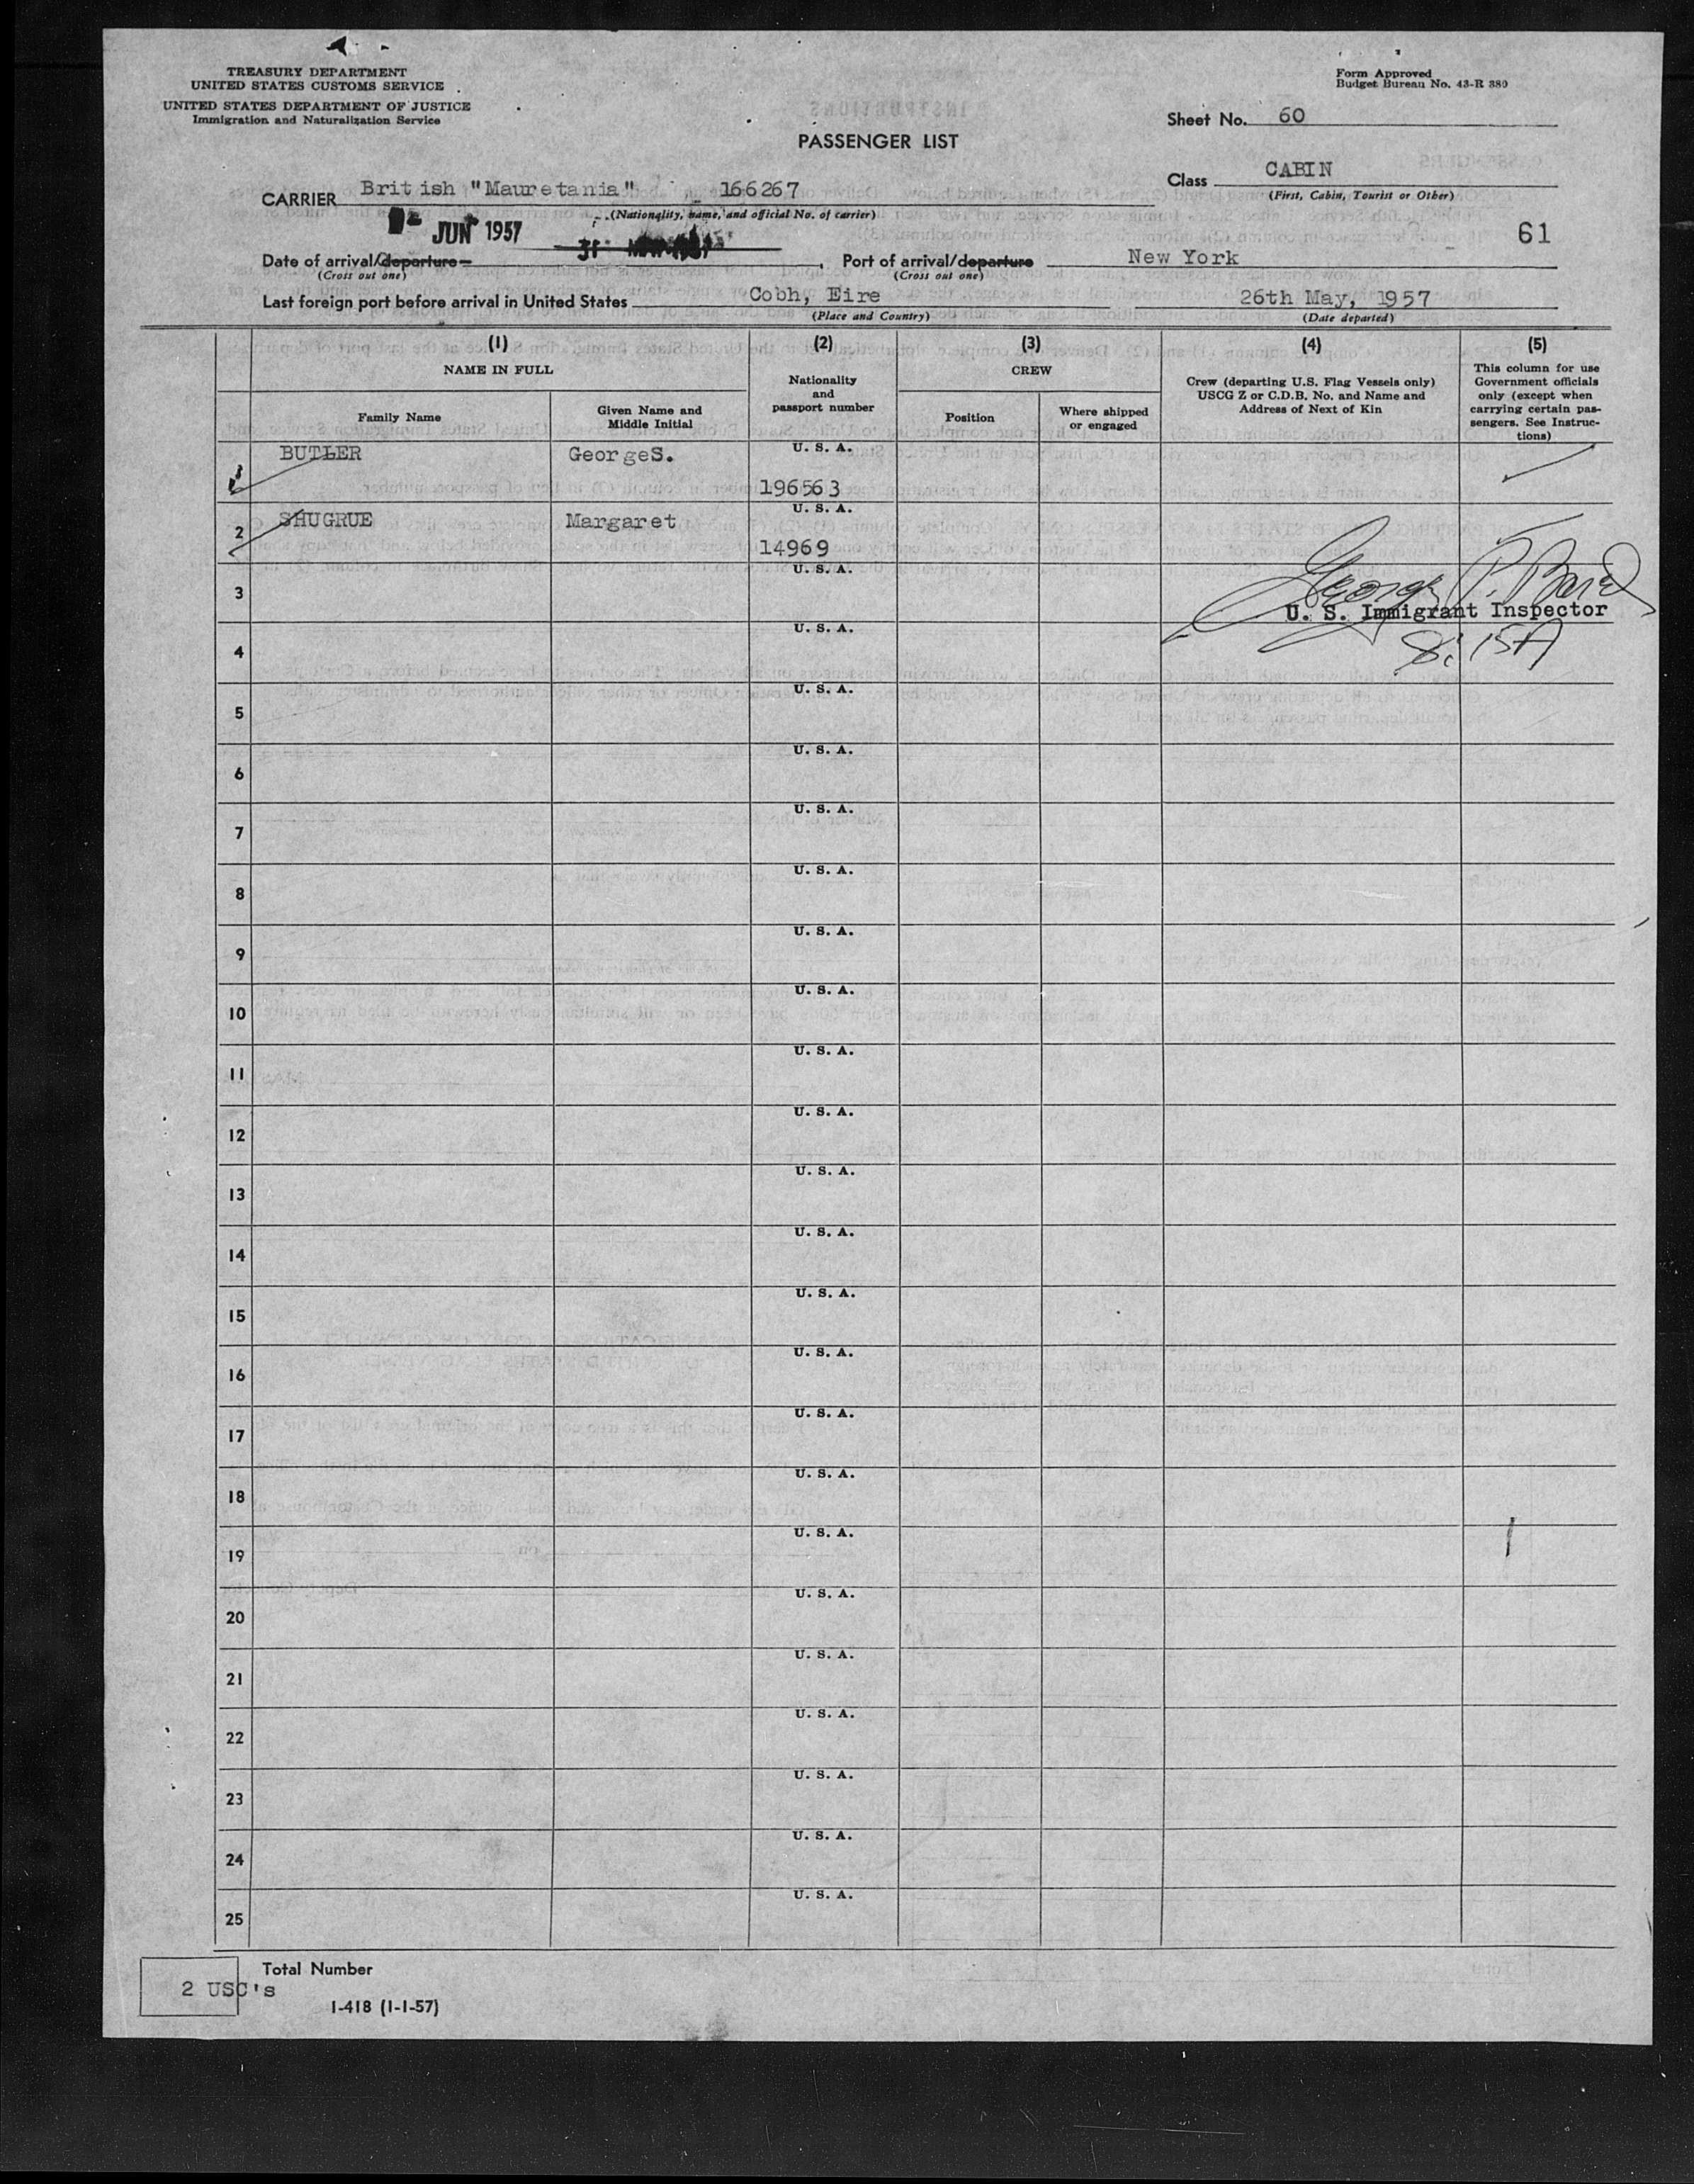 TREASURY DEPARTMENT
UNITED STATES CUSTOMS SERVICE
UNITED STATES DEPARTMENT OF JUSTICE
Immigration and Naturalization Service
Form Approved
Budget Bureau No. 43-R 380
Sheet No. 60
PASSENGER LIST
Class CABIN
(First, Cabin, Tourist or Other)
CARRIER British "Mauretania" 166267
(Nationality, name, and official No. of carrier)
JUN 1957
61
Date of arrival/departure
(Cross out one)
Port of arrival/departure New York
(Cross out one)
Last foreign port before arrival in United States Cobh, Eire 26th May, 1957
(Place and Country) (Date departed)
(1) (2) (3) (4) (5)
NAME IN FULL
Family Name
Given Name and
Middle Initial
Nationality
and
passport number
CREW
Position
Where shipped
or engaged
Crew (departing U.S. Flag Vessels only)
USCG Z or C.D.B. No. and Name and
Address of Next of Kin
This column for use
Government officials
only (except when
carrying certain pas-
sengers. See Instruc-
tions)
1 BUTLER GeorgeS. U. S. A.
196563
2 SHUGRUE Margaret U. S. A.
14969
3 U. S. A.
George P.
U. S. Immigrant Inspector
4 U. S. A.
5 U. S. A.
6 U. S. A.
7 U. S. A.
8 U. S. A.
9 U. S. A.
10 U. S. A.
11 U. S. A.
12 U. S. A.
13 U. S. A.
14 U. S. A.
15 U. S. A.
16 U. S. A.
17 U. S. A.
18 U. S. A.
19 U. S. A.
20 U. S. A.
21 U. S. A.
22 U. S. A.
23 U. S. A.
24 U. S. A.
25 U. S. A.
Total Number
2 USC's
I-418 (1-1-57)